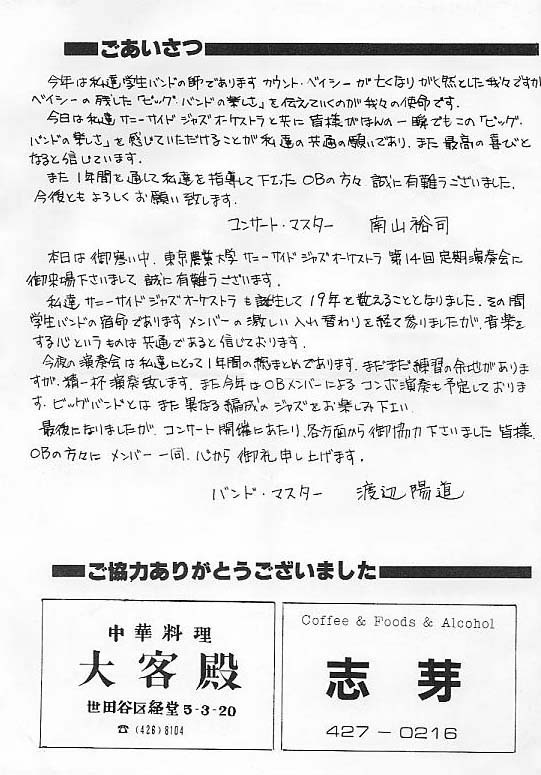 ごあいさつ
今年は私達学生バンドの師であります カウント・ベイシー が亡くなり がく然とした我々ですが
ベイシーの残した「ビッグ・バンドの楽しさ」を伝えていくのが我々の使命です.
今日は私達 サニーサイド ジャズオーケストラと共に 皆様がほんの一瞬でもこの「ビッグ・
バンドの楽しさ」を感じていただけることが私達の共通の願いであり、また最高の喜びと
なると信じています.
また 1年間を通して私達を指導して下さった OBの方々 誠に有難うございました.
今後ともよろしくお願い致します.
コンサート・マスター 南山裕司
本日は御寒い中、東京農業大学 サニーサイドジャズオーケストラ 第14回定期演奏会に
御来場下さいまして 誠に有難うございます.
私達 サニーサイドジャズオーケストラ も誕生して 19年を数えることとなりました. その間
学生バンドの宿命であります メンバーの激しい 入れ替わりを経て参りましたが、音楽を
する心というものは 共通であると信じております.
今夜の演奏会は私達にとって1年間の総まとめであります. まだまだ練習の余地がありま
すが、精一杯演奏致します. また今年はOBメンバーによる コンボ演奏も予定しておりま
す. ビッグバンドとは また異なる編成の ジャズをお楽しみ下さい.
最後になりましたが、コンサート開催にあたり、各方面から御協力下さいました 皆様、
OBの方々に メンバー一同、心から 御礼申し上げます.
バンド・マスター 渡辺陽道
ご協力ありがとうございました
中華料理
大客殿
世田谷区経堂 5-3-20
☎ (426) 8104
Coffee & Foods & Alcohol
志芽
427-0216